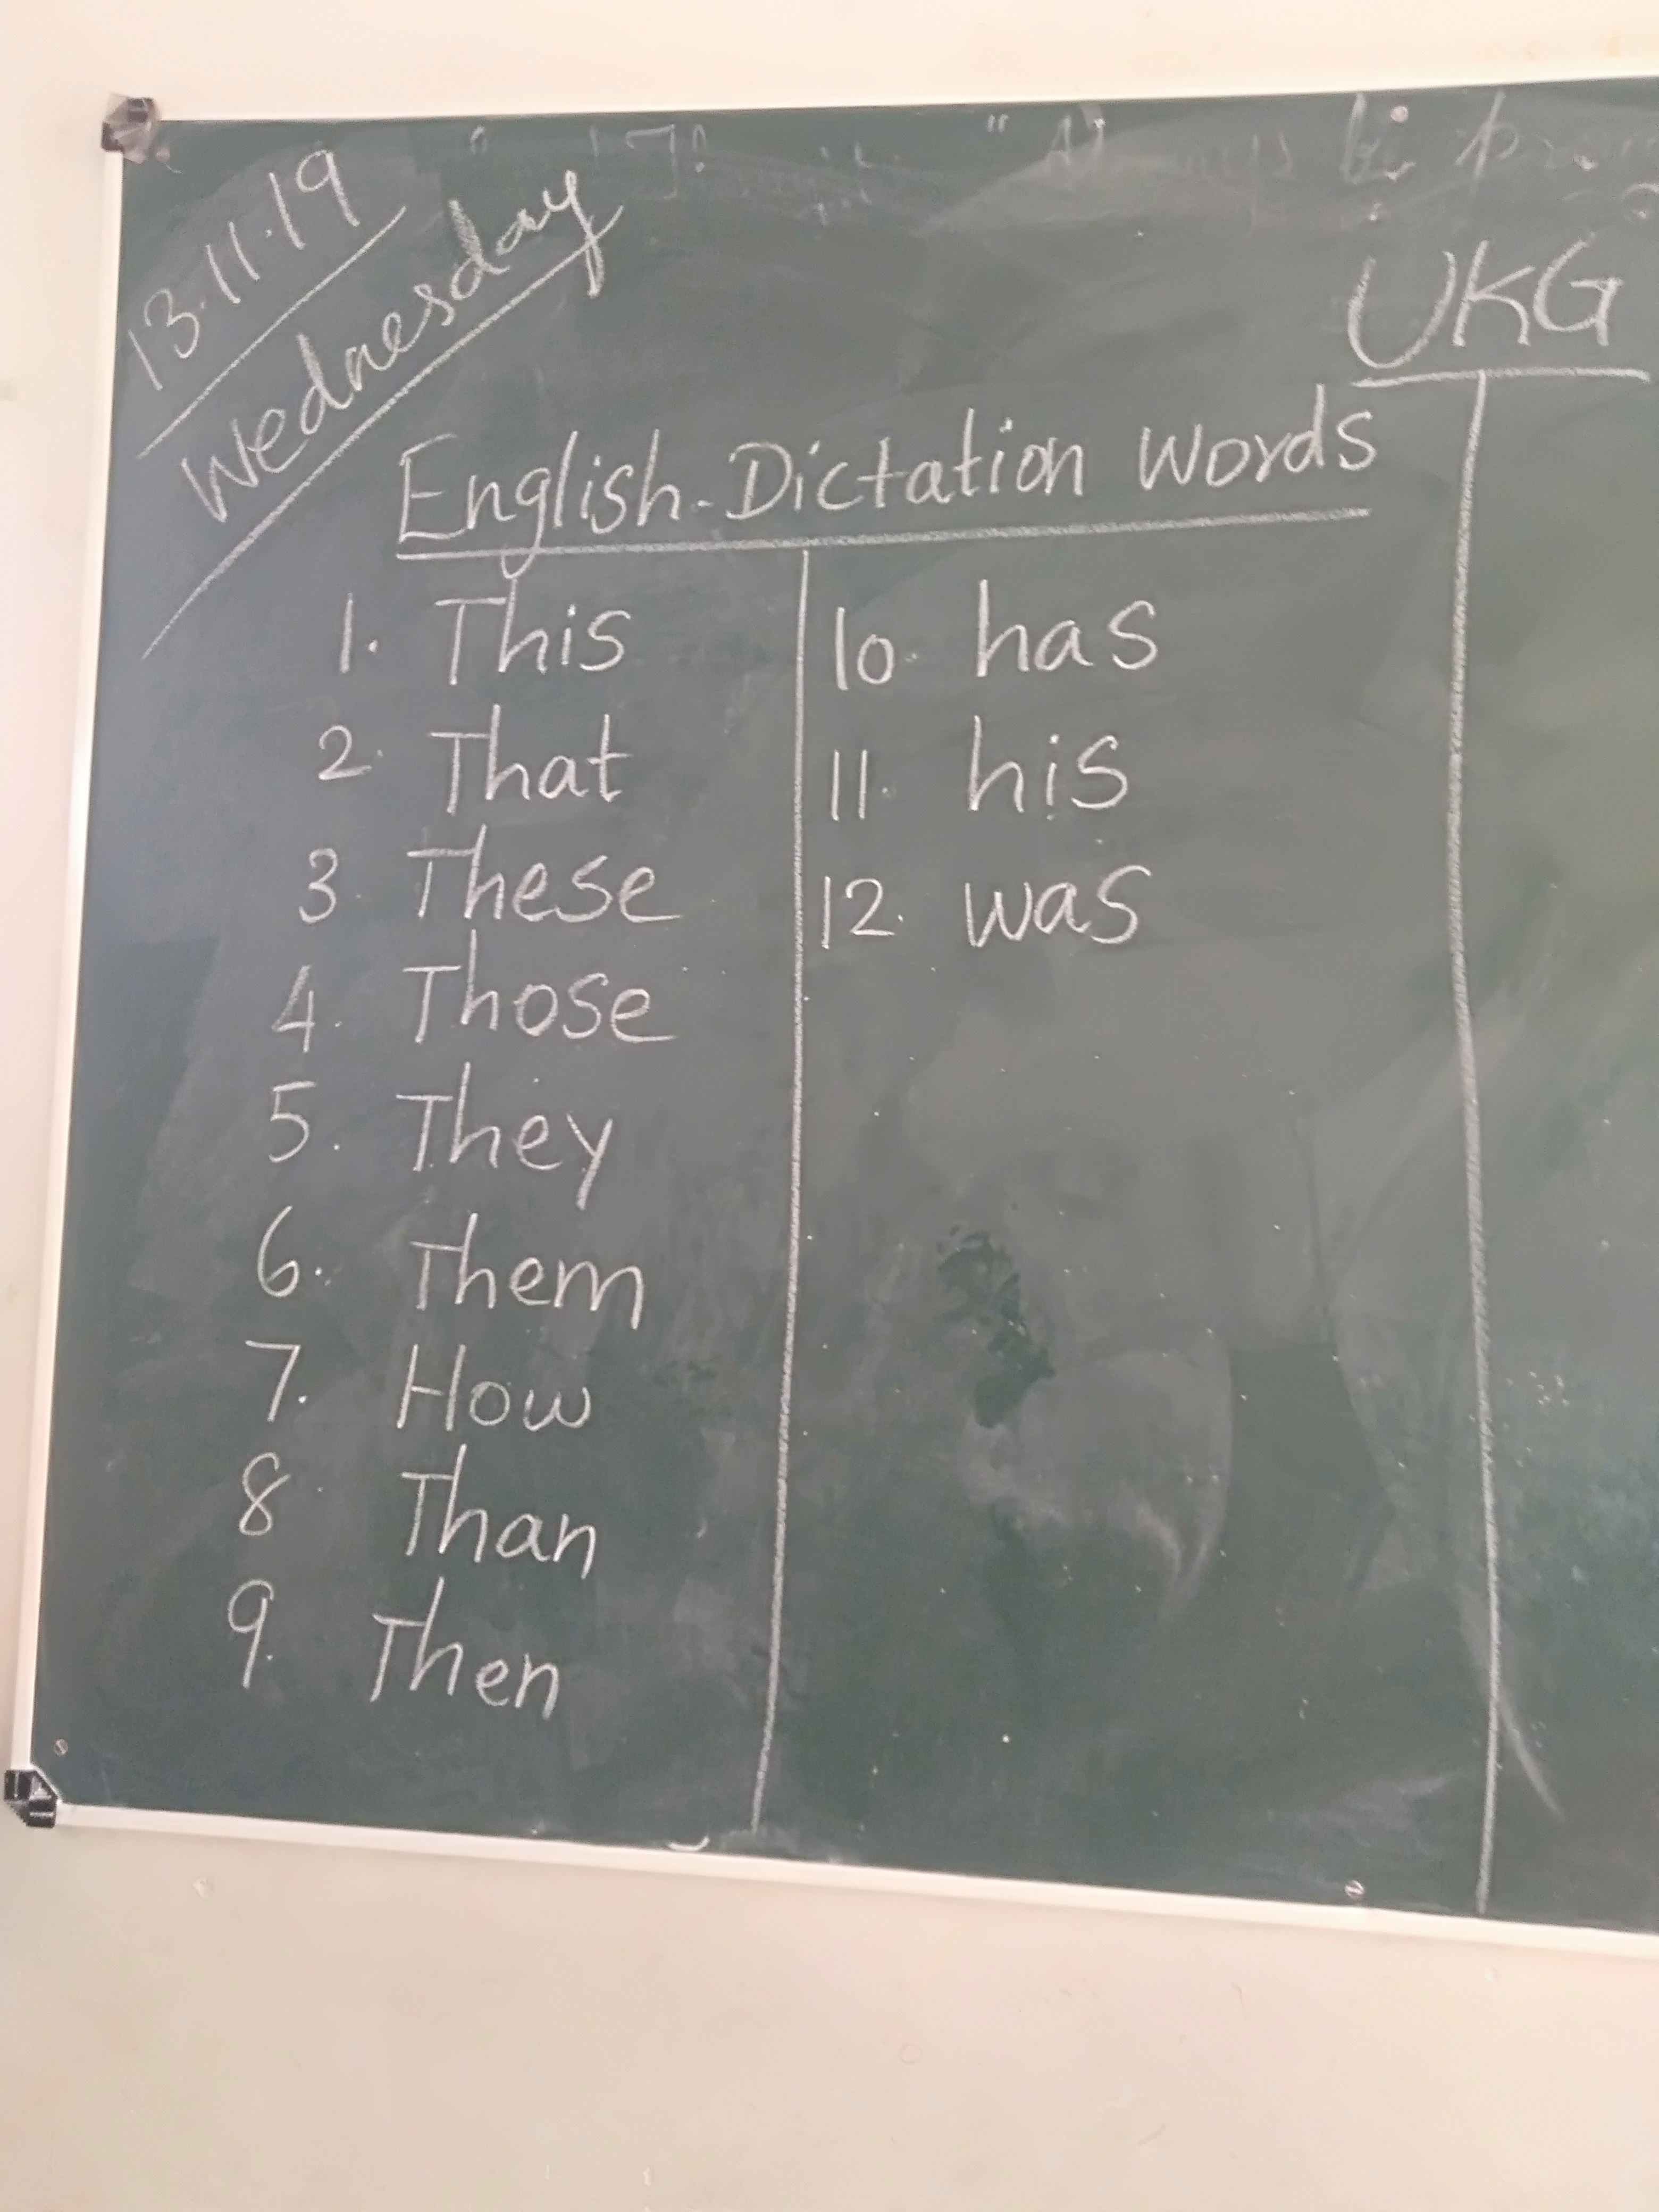 13.11.19
Wednesday
UKG
English-Dictation words
1. This
2. That
3. These
4. Those
5. They
6. Them
7. How
8. Than
9. Then
10. has
11. his
12. was